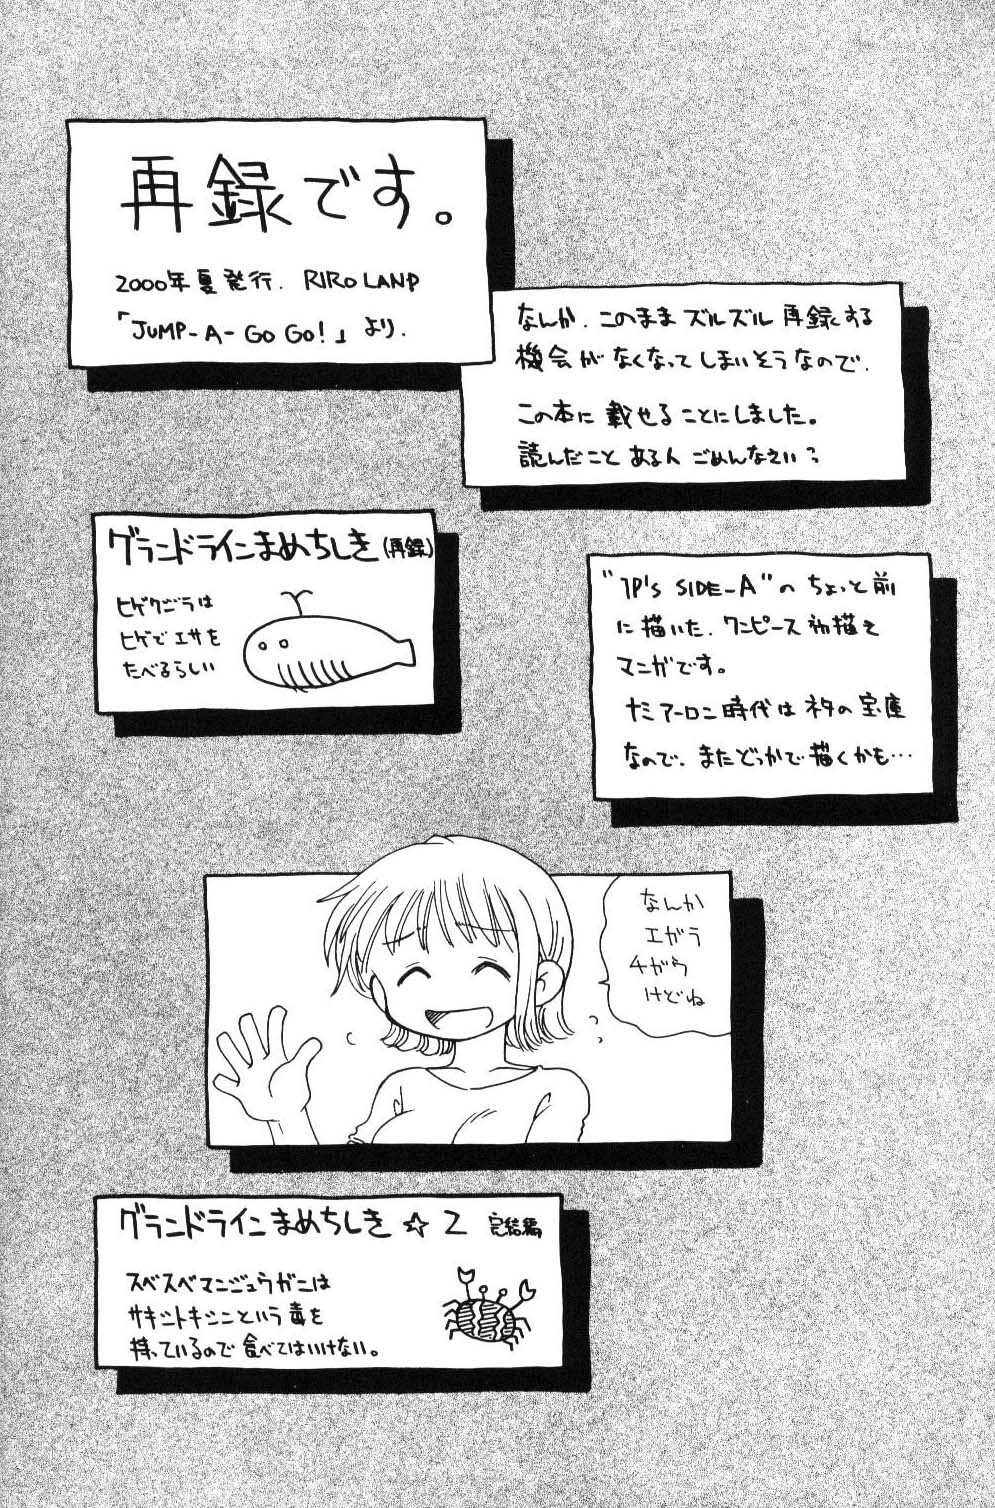 再録です。
2000年夏発行. RIRO LAND
「JUMP-A-GO GO!」より.
なんか、このまま ズルズル 再録する
機会がなくなってしまいそうなので、
この本に 載せることにしました。
読んだこと ある人 ごめんなさい
グランドラインまめちしき(再録)
ヒゲクジラは
ヒゲで エサを
たべるらしい
"1P's SIDE-A"の ちょっと前
に描いた、ワンピース初描き
マンガです。
ナミアーロン時代は ネタの宝庫
なので、またどっかで描くかも…
なんか
エガラ
チガウ
けどね
グランドラインまめちしき☆2 完結編
スベスベマンジュウガニは
サキシトキシンという毒を
持っているので 食べてはいけない。